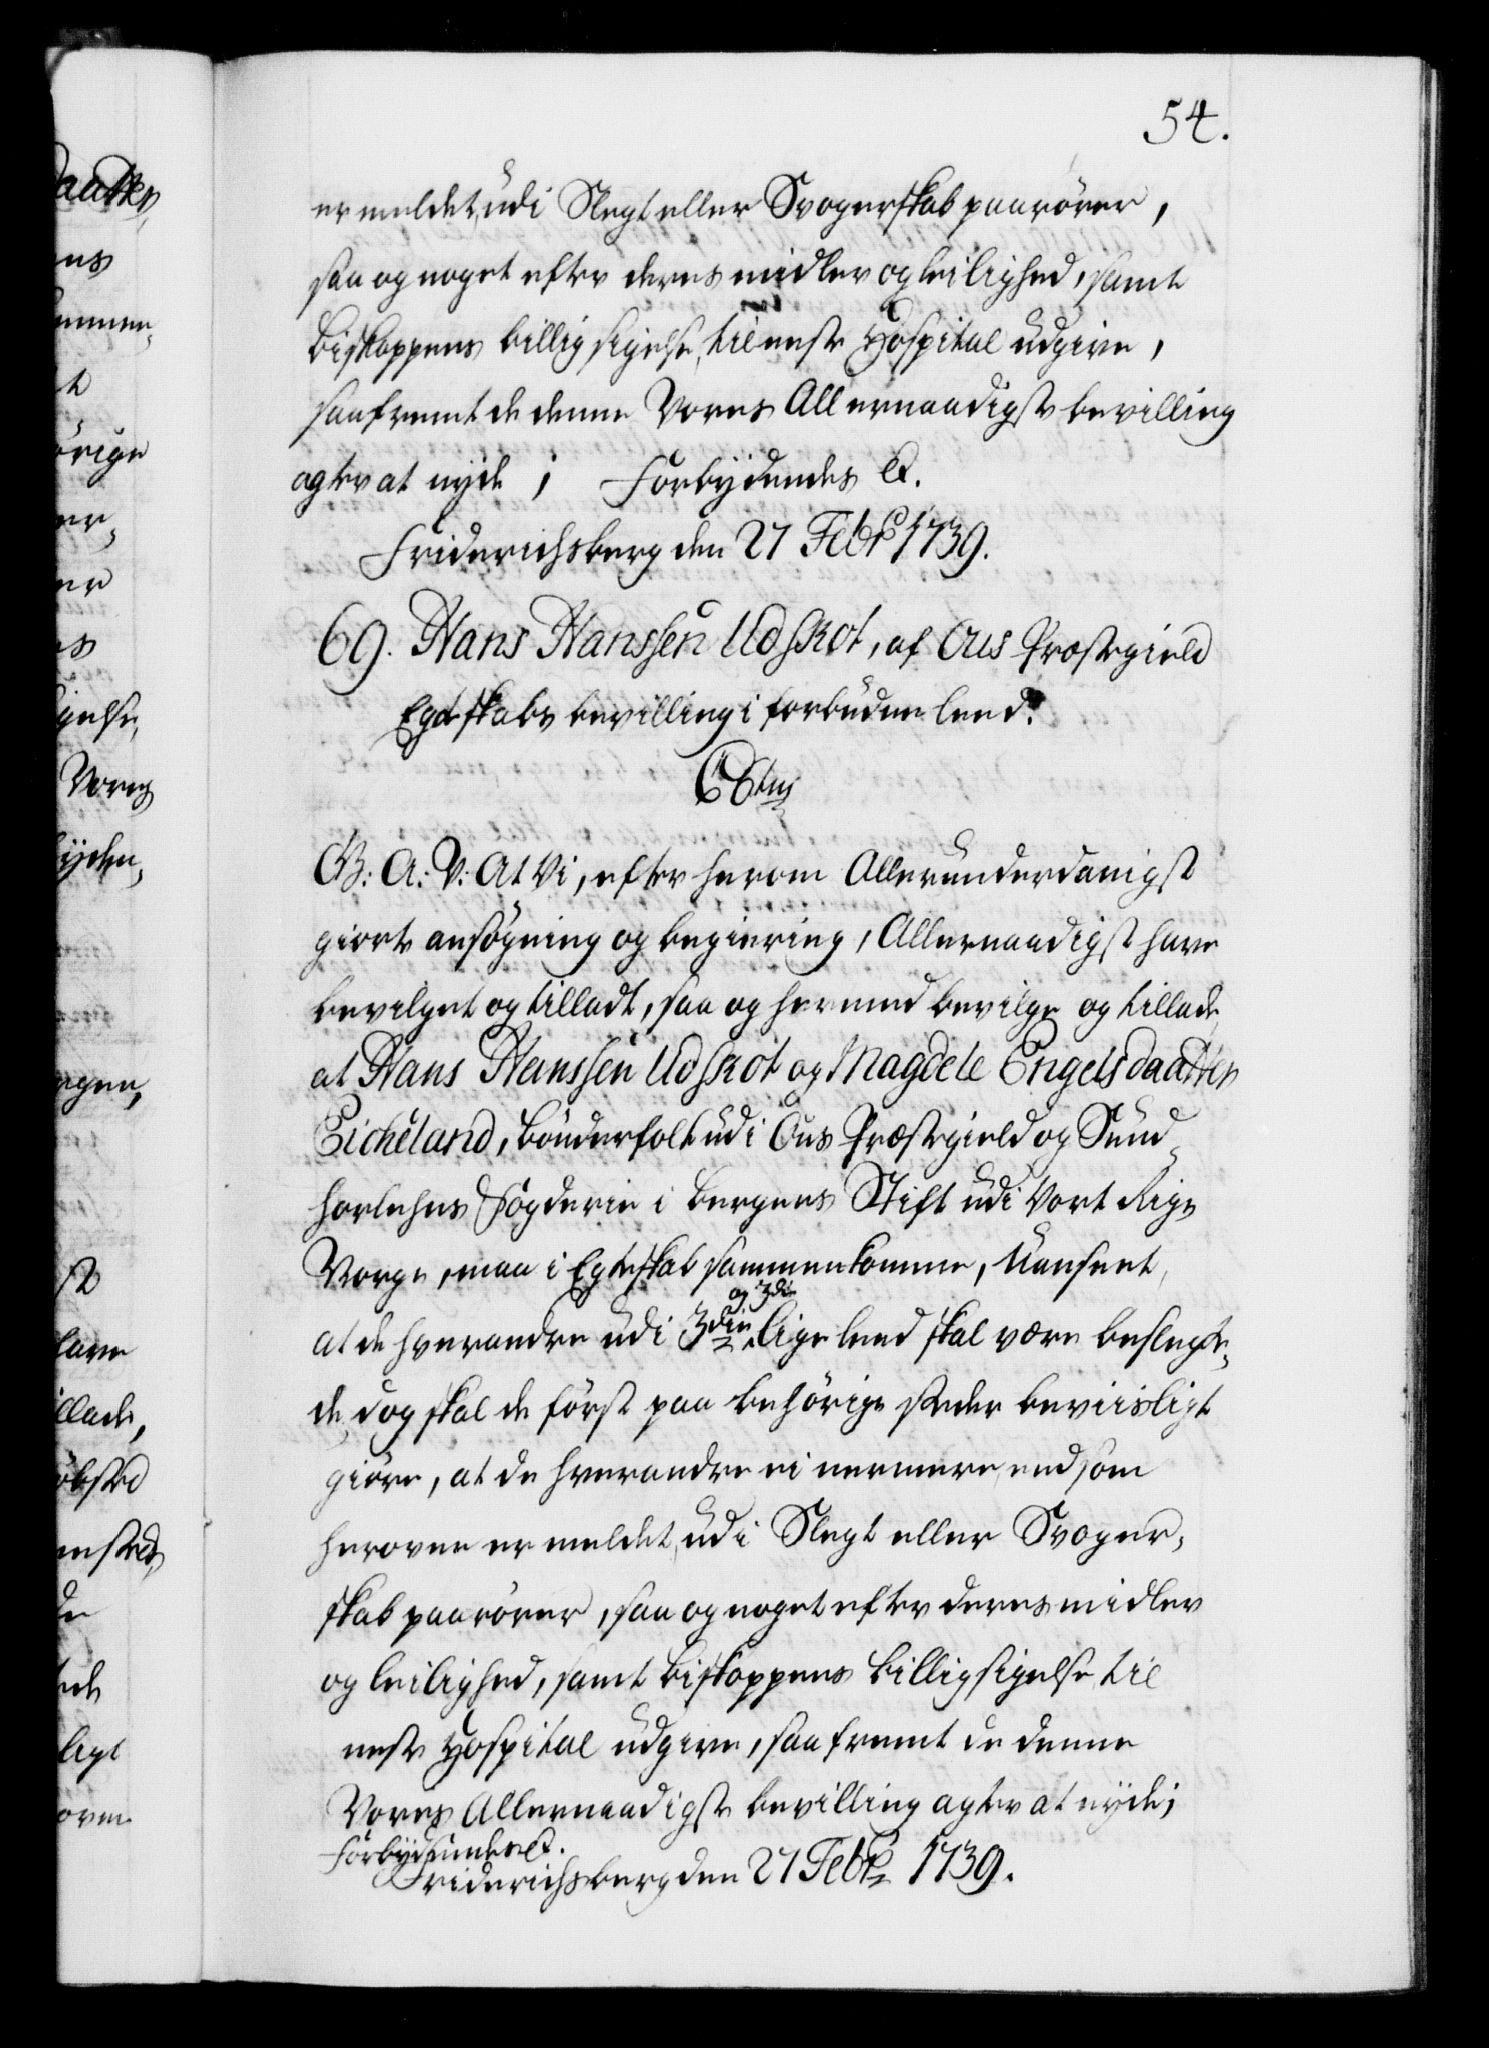 54.
er meldet, udi Slegt eller Svogerskab paarörer,
saa og noget efter deres midler og leilighed, samt
Biskoppens billigsigelse, til neste Hospital udgive,
saafremt de denne Vores Allernaadigste bevilling
agter at nyde; Forbydendes &.
Friderichsberg den 27 Febr: 1739.
69. Hans Hanssen Udskot, af Ous Præstegield
Egteskabs bevilling i forbuden leed.
C6tus
G: A: V: At Vi, efter herom Allerunderdanigst
giorte ansögning og begiering, Allernaadigst have
bevilget og tilladt, saa og hermed bevilge og tillade,
at Hans Hanssen Udskot og Magdele Engelsdaatter
Eicheland, bönderfolk udi Ous Præstegield og Sund-
horlehns Fögderie i Bergens Stift udi Vort Rige
Norge, maa i Egteskab sammenkomme, Uanseet,
at de hverandre udi 3die og 3die lige leed skal være beslegte-
de, dog skal de först paa behörige steder beviisligt
giöre, at de hverandre ei nermere, end som
heroven er meldet, udi Slegt eller Svoger-
skab paarörer, saa og noget efter deres midler
og leilighed, samt Biskoppens billigsigelse, til
neste Hospital udgive, saafremt de denne
Vores Allernaadigste bevilling agter at nyde;
Forbydendes &.
Friderichsberg den 27 Febr: 1739.